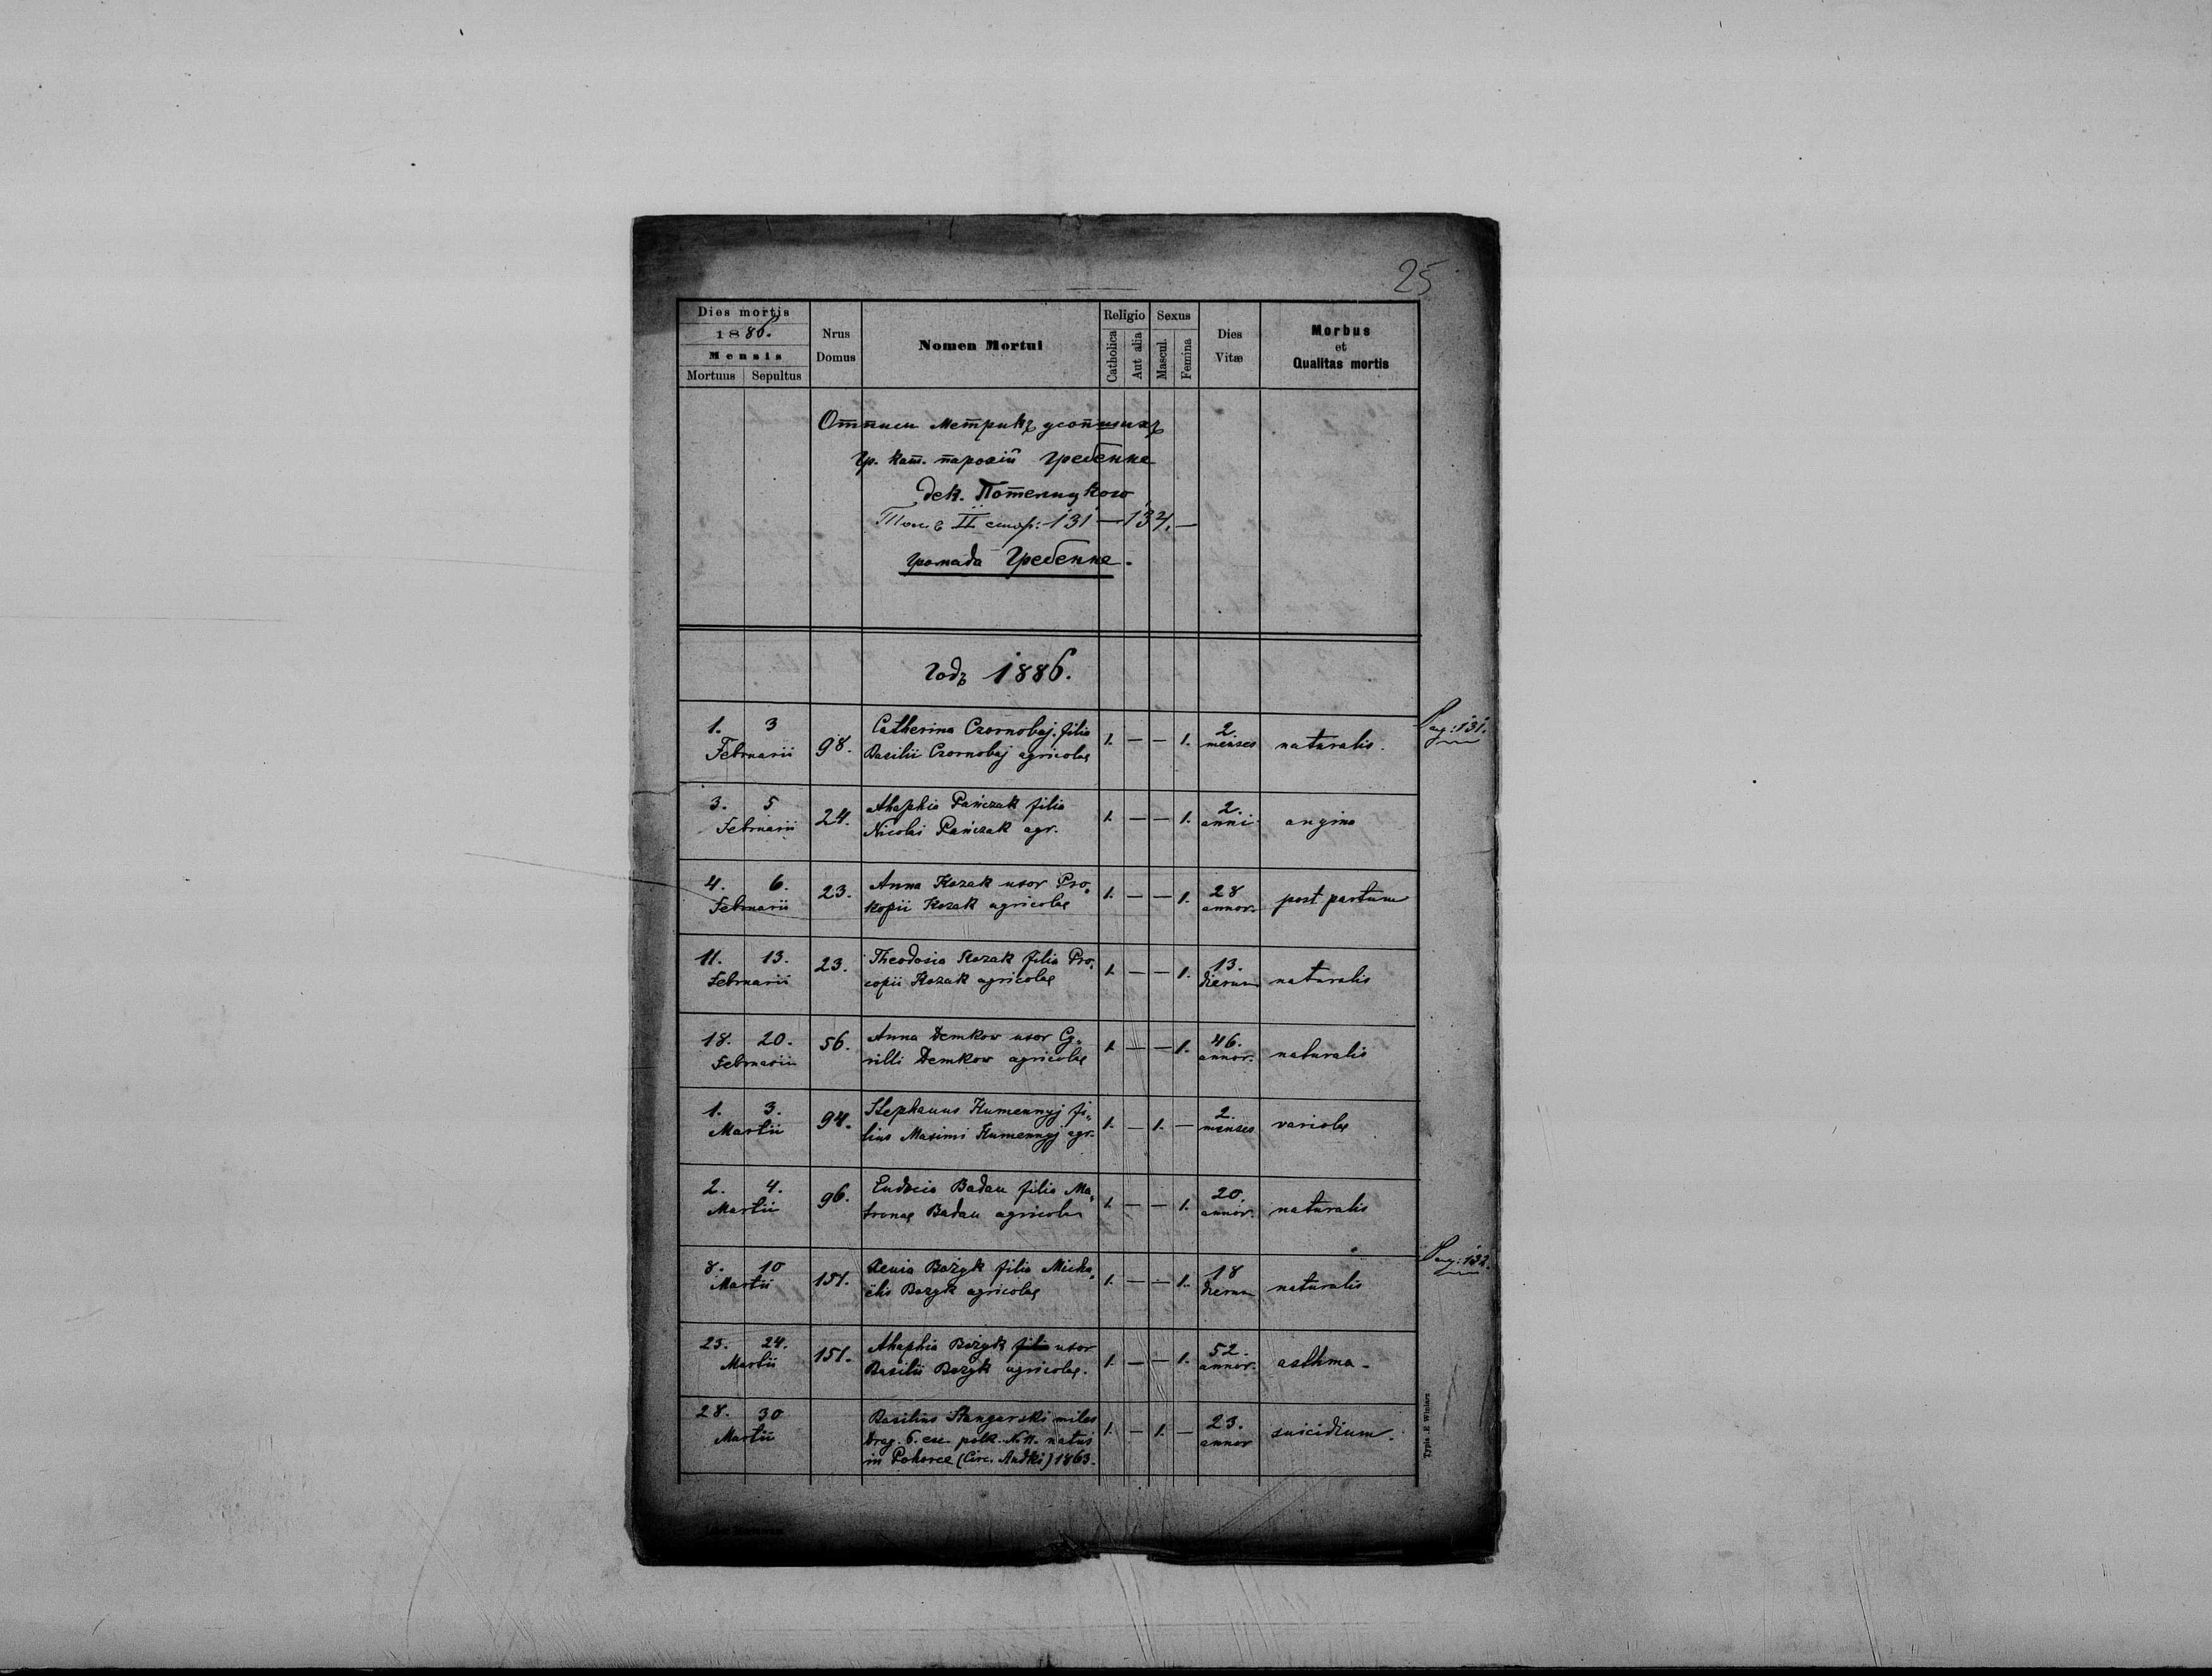 25
Dies mortis
1886.
Mensis
Mortuus Sepultus
Nrus Domus
Nomen Mortui
Religio
Catholica
Aut alia
Sexus
Mascul.
Femina
Dies Vitæ
Morbus et Qualitas mortis
Отписи Метрикъ усопшихъ
гр. кат. парохіи Гребенне
дек. Потелицкого
Томъ II стор: 131 — 134. —
громада Гребенне.
Годъ 1886.
Pag: 131.
1. 3 98. Catherina Czornobaj filia 1. — — 1. 2. naturalis.
Februarii Basilii Czornobaj agricolae menses
3. 5 24. Ahaphia Pańczak filia 1. — — 1. 2. angina
Februarii Nicolai Pańczak agr. anni
4. 6. 23. Anna Kozak uxor Pro„ 1. — — 1. 28 post partum
Februarii kopii Kozak agricolae annor.
11. 13. 23. Theodosia Kozak filia Pro„ 1. — — 1. 13. naturalis
Februarii copii Kozak agricolae dierum
18. 20. 56. Anna Demkow uxor Cy„ 1. — — 1. 46. naturalis
Februarii rilli Demkow agricolae annor.
1. 3. 94. Stephanus Humennyj fi„ 1. — 1. — 2. variolae
Martii lius Maximi Humennyj agr. menses
2. 4. 96. Eudocia Badan filia Ma„ 1. — — 1. 20. naturalis
Martii tronae Badan agricolae annor.
Pag: 132.
8. 10 151. Xenia Bożyk filia Micha„ 1. — — 1. 18 naturalis
Martii ëlis Bożyk agricolae dierum
23. 24. 151. Ahaphia Bożyk filia uxor 1. — — 1. 52. asthma.
Martii Basilii Bożyk agricolae. annor.
28. 30 Basilius miles 1. — 1. — 23. suicidium.
Martii Drag. 6. esc. polk. N. 11. natus annor
in Pohorce (Circ. Rudki) 1863.
Typis E Winiarz
Liber Mortuorum